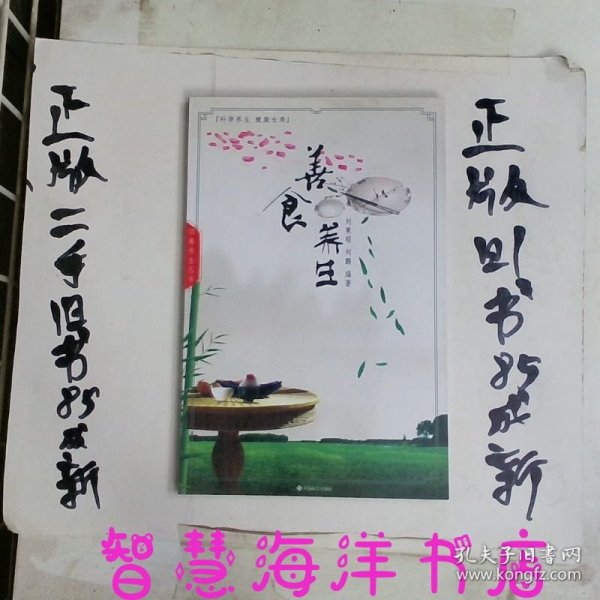 正版二手旧书85成新
『科学养生 健康长寿』
善食养生
刘东昭 刘鹏 编著
正版旧书85成新
智慧海洋书店
孔夫子旧书网
www.kongfz.com